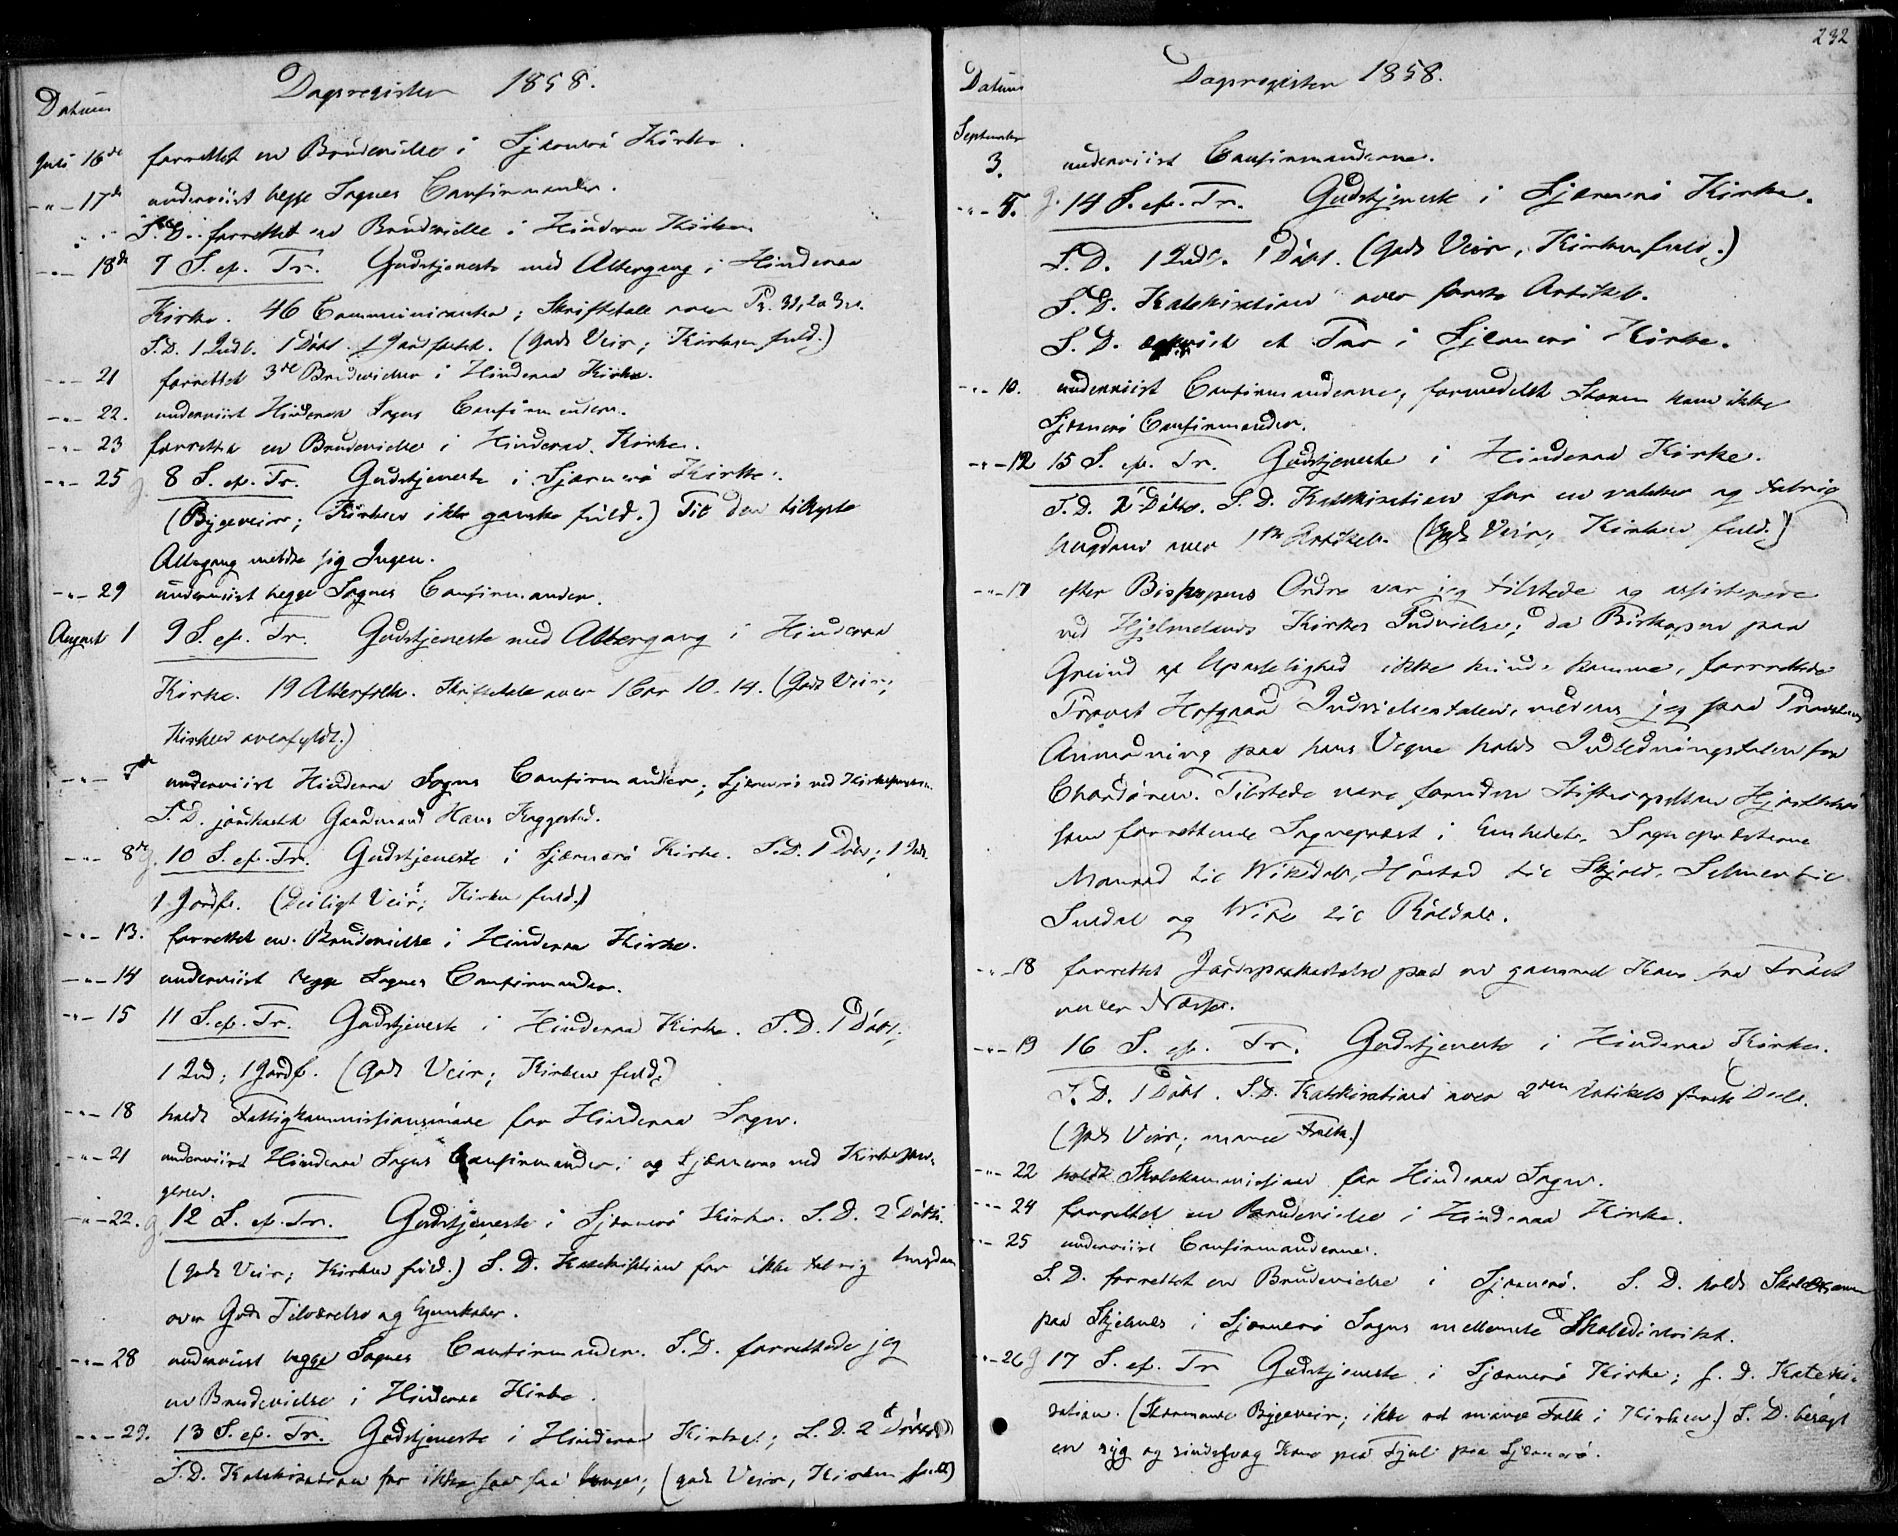 Dagsregister 1858.
Datum
Juli 16de forrettet en Brudevielse i Sjærnerö Kirke.
-"- 17de underviist begge Sognes Confirmander.
S. D. forrettet en Brudevielse i Hinderaa Kirke.
-"- 18de 7 S. ef. Tr. Gudstjeneste med Altergang i Hinderaa
Kirke. 46 Communicanter; Skriftetale over Ps. 32, 2 o 3 v.
S. D. 1 Indl. 1 Döbt. 1 Jordfæstet. (Godt Veir; Kirken fuld.)
-"- 21 forrettet 3de Brudevielser i Hinderaa Kirke.
-"- 22. underviist Hinderaa Sogns Confirmander.
-"- 23 forrettet en Brudevielse i Hinderaa Kirke.
-"- 25 g. 8 S. ef. Tr. Gudstjeneste i Sjærnerö Kirke.
(Bygeveir; Kirken ikke ganske fuld.) Til den tillyste
Altergang meldte sig Ingen.
-"- 29 underviist begge Sognes Confirmander.
August 1 9 S. ef. Tr. Gudstjeneste med Altergang i Hinderaa
Kirke. 19 Altersfolk. Skriftetale over 1 Cor 10. 14. (Godt Veir;
Kirken overfyldt.)
-"- 7de underviist Hinderaa Sogns Confirmander; Sjærnerö ved Kirkesangeren.
S. D. jordfæstet Gaardmand Hans
-"- 8de g. 10 S. ef. Tr. Gudstjeneste i Sjærnerö Kirke. S. D. 1 Döbt; 1 Indl.
1 Jordf. (Deiligt Veir; Kirken fuld.)
-"- 13. forrettet en Brudevielse i Hinderaa Kirke.
-"- 14 underviist begge Sognes Confirmander.
-"- 15 11 S. ef. Tr. Gudstjeneste i Hinderaa Kirke. S. D. 1 Döbt;
1 Ind; 1 Jordf. (Godt Veir; Kirken fuld.)
-"- 18 holdt Fattigkommissionsmöde for Hinderaa Sogn.
-"- 21 underviist Hinderaa Sogns Confirmander; og Sjærnerös ved Kirkesan-
geren.
-"- 22. g. 12 S. ef. Tr. Gudstjeneste i Sjærnerö Kirke. S. D. 2 Döbte.
(godt Veir; Kirken fuld.) S. D. Katekisation for ikke talrig Ungdom
over Guds Tilværelse og Egenskaber.
-"- 28 underviist begge Sognes Confirmander. S. D. forrettede jeg
en Brudevielse i Hinderaa Kirke.
-"- 29. 13 S. ef. Tr. Gudstjeneste i Hinderaa Kirke; S. D. 2 Döbte
S. D. Katekisation for ikke saa faa Unge; (godt Veir, Kirken fuld)
232
Dagsregister 1858.
Datum
September
3. underviist Confirmanderne.
-"- 5. g. 14 S. ef. Tr. Gudstjeneste i Sjærnerö Kirke.
S. D. 1 Indl. 1 Döbt. (Godt Veir, Kirken fuld.)
S. D. Katekisation over förste Artikel.
S. D. et Par i Sjærnerö Kirke.
-"- 10. underviist Confirmanderne; formedelst Storm kom ikke
Sjærnerö Confirmander.
-"- 12 15 S. ef. Tr. Gudstjeneste i Hinderaa Kirke.
S. D. 2 Döbte. S. D. Katekisation for en vakker og talrig
Ungdom over 1ste Artikel. (Godt Veir; Kirken fuld.)
-"- 17 efter Bispens Ordre var jeg tilstede og assisterede
ved Hjelmelands Kirkes Indvielse; da Biskopen paa
Grund af Upasselighed ikke kunde komme, forrettede
Provst Hofgaard Indvielsestalen, medens jeg paa Provstens
Anmodning paa hans Vegne holdt Indledningstalen fra
Chordören. Tilstede vare foruden Stiftscapellan
som forrettende Sognepræst i Embedet, Sognepræsterne
til Wikedal, til Skjold, til
Suldal og til Röldal.
-"- 18 forrettet Jordspaakastelse paa en gammel Kone fra
under Næsset.
-"- 19 16 S. ef. Tr. Gudstjeneste i Hinderaa Kirke.
S. D. 1 Döbt. S. D. Katekisation over 2den Artikels förste Deel.
(Godt Veir; mange Folk.)
-"- 22 holdt Skolekommission for Hinderaa Sogn.
-"- 24 forrettet en Brudevielse i Hinderaa Kirke.
-"- 25 underviist Confirmanderne.
S. D. forrettet en Brudevielse i Sjærnerö. S. D. holdt Skoleexamen
paa Skjelnes i Sjærnerö Sogns mellemste Skoledistrikt.
-"- 26 g 17 S. ef. Tr Gudstjeneste i Sjærnerö Kirke; S. D. Kateki-
sation. (Stormende Bygeveir; ikke ret mange Folk i Kirken.) S. D. besögt
en syg og sindssvag Kone paa paa Sjærnerö.